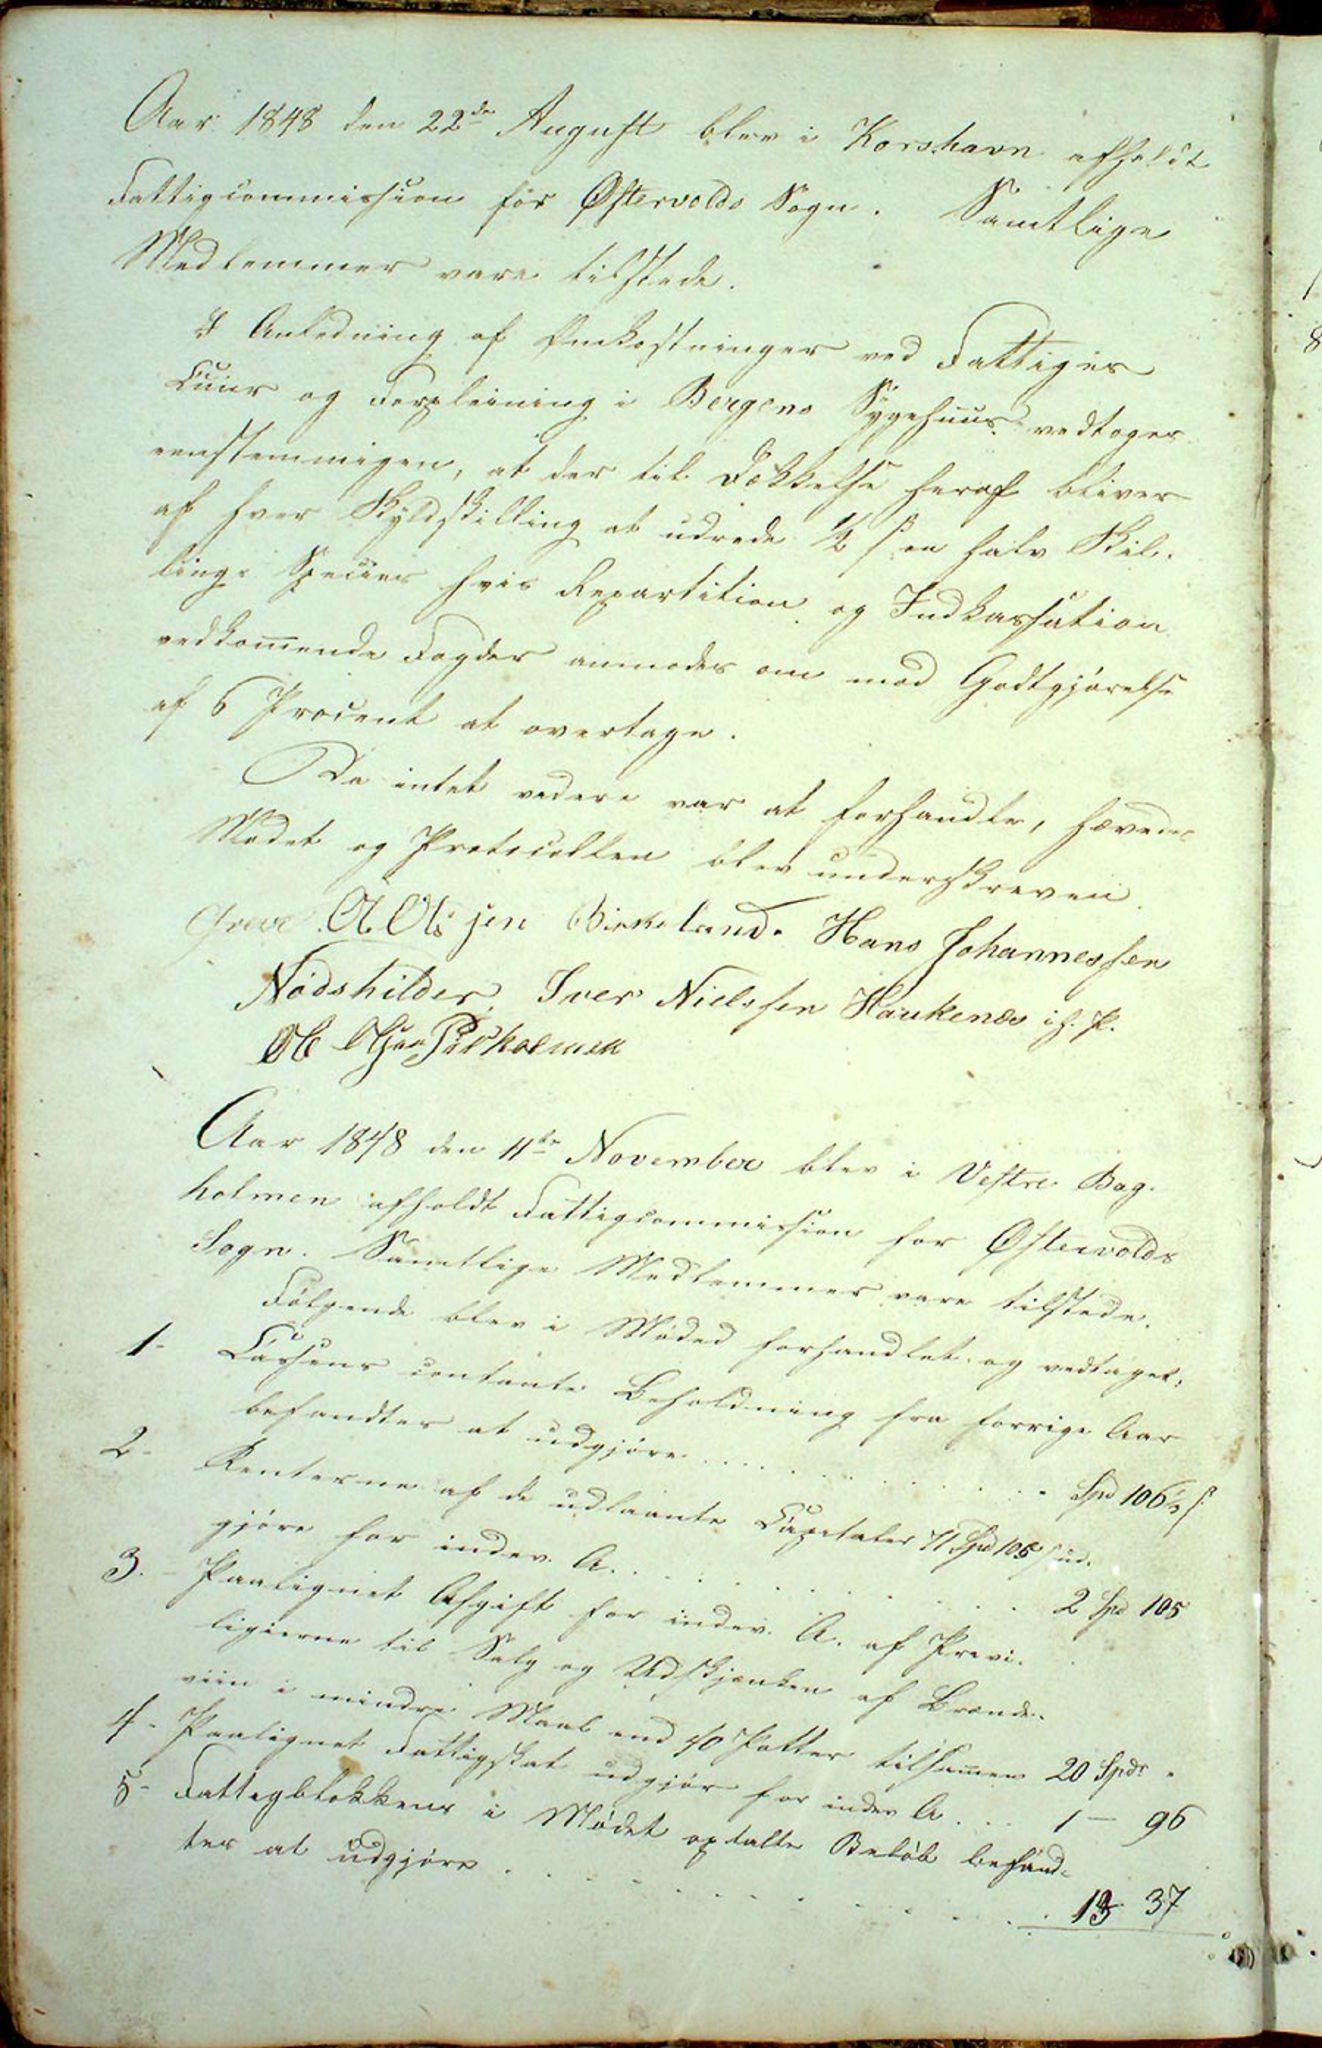 Aar 1848 den 22de August blev i Korshavn afholdt
Fattigcommission for Østervolds Sogn. Samtlige
Medlemmer vare tilstede.
I Anledning af Omkostninger ved Fattiges
Cuur og Forpleining i Bergens Sygehuus vedtoges
eenstemmigen, at der til Dækkelse heraf bliver
af hver Skyldskilling at udrede ½ ß en halv Skil-
lings Species hvis Repartition og Indkassation
vedkom̅ende Fogder anmodes om mod Godtgjørelse
af 6 Procent at overtage.
Da intet videre var at forhandle, hævedes
Mødet og Protocollen blev underskreven.
Greve A. Olsen Birkeland. Hans Johannessen
Nødskilder. Iver Nielssen Haukenæs i. h. P.
Ole Olsen
Aar 1848 den 11te November blev i Vestre Bag-
holmen afholdt Fattigcommission for Østervolds
Sogn. Samtlige Medlemmer vare tilstede.
Følgende blev i Møded forhandlet og vedtaget:
1- Cassens contante Beholdning fra forrige Aar
befandtes at udgjøre . . . . . . . . Spd 106½ ß
2- Renterne af de udlaante Capitaler 71 Spd 105 ß ud-
gjøre for indev. A. . . . . . . . . 2 Spd 105
3. - Paalignet Afgift for indev. A. af Previ-
ligierne til Salg og Udskjænken af Brænde-
viin i mindre Maal end 40 Potter tilsam̅en 20 Spdr "
4- Paalignet Fattigskat udgjør for indev A . . . 1 — 96
5- Fattigblokkens i Mødet optalte Beløb befand-
tes at udgjøre . . . . . . . . . 13 37